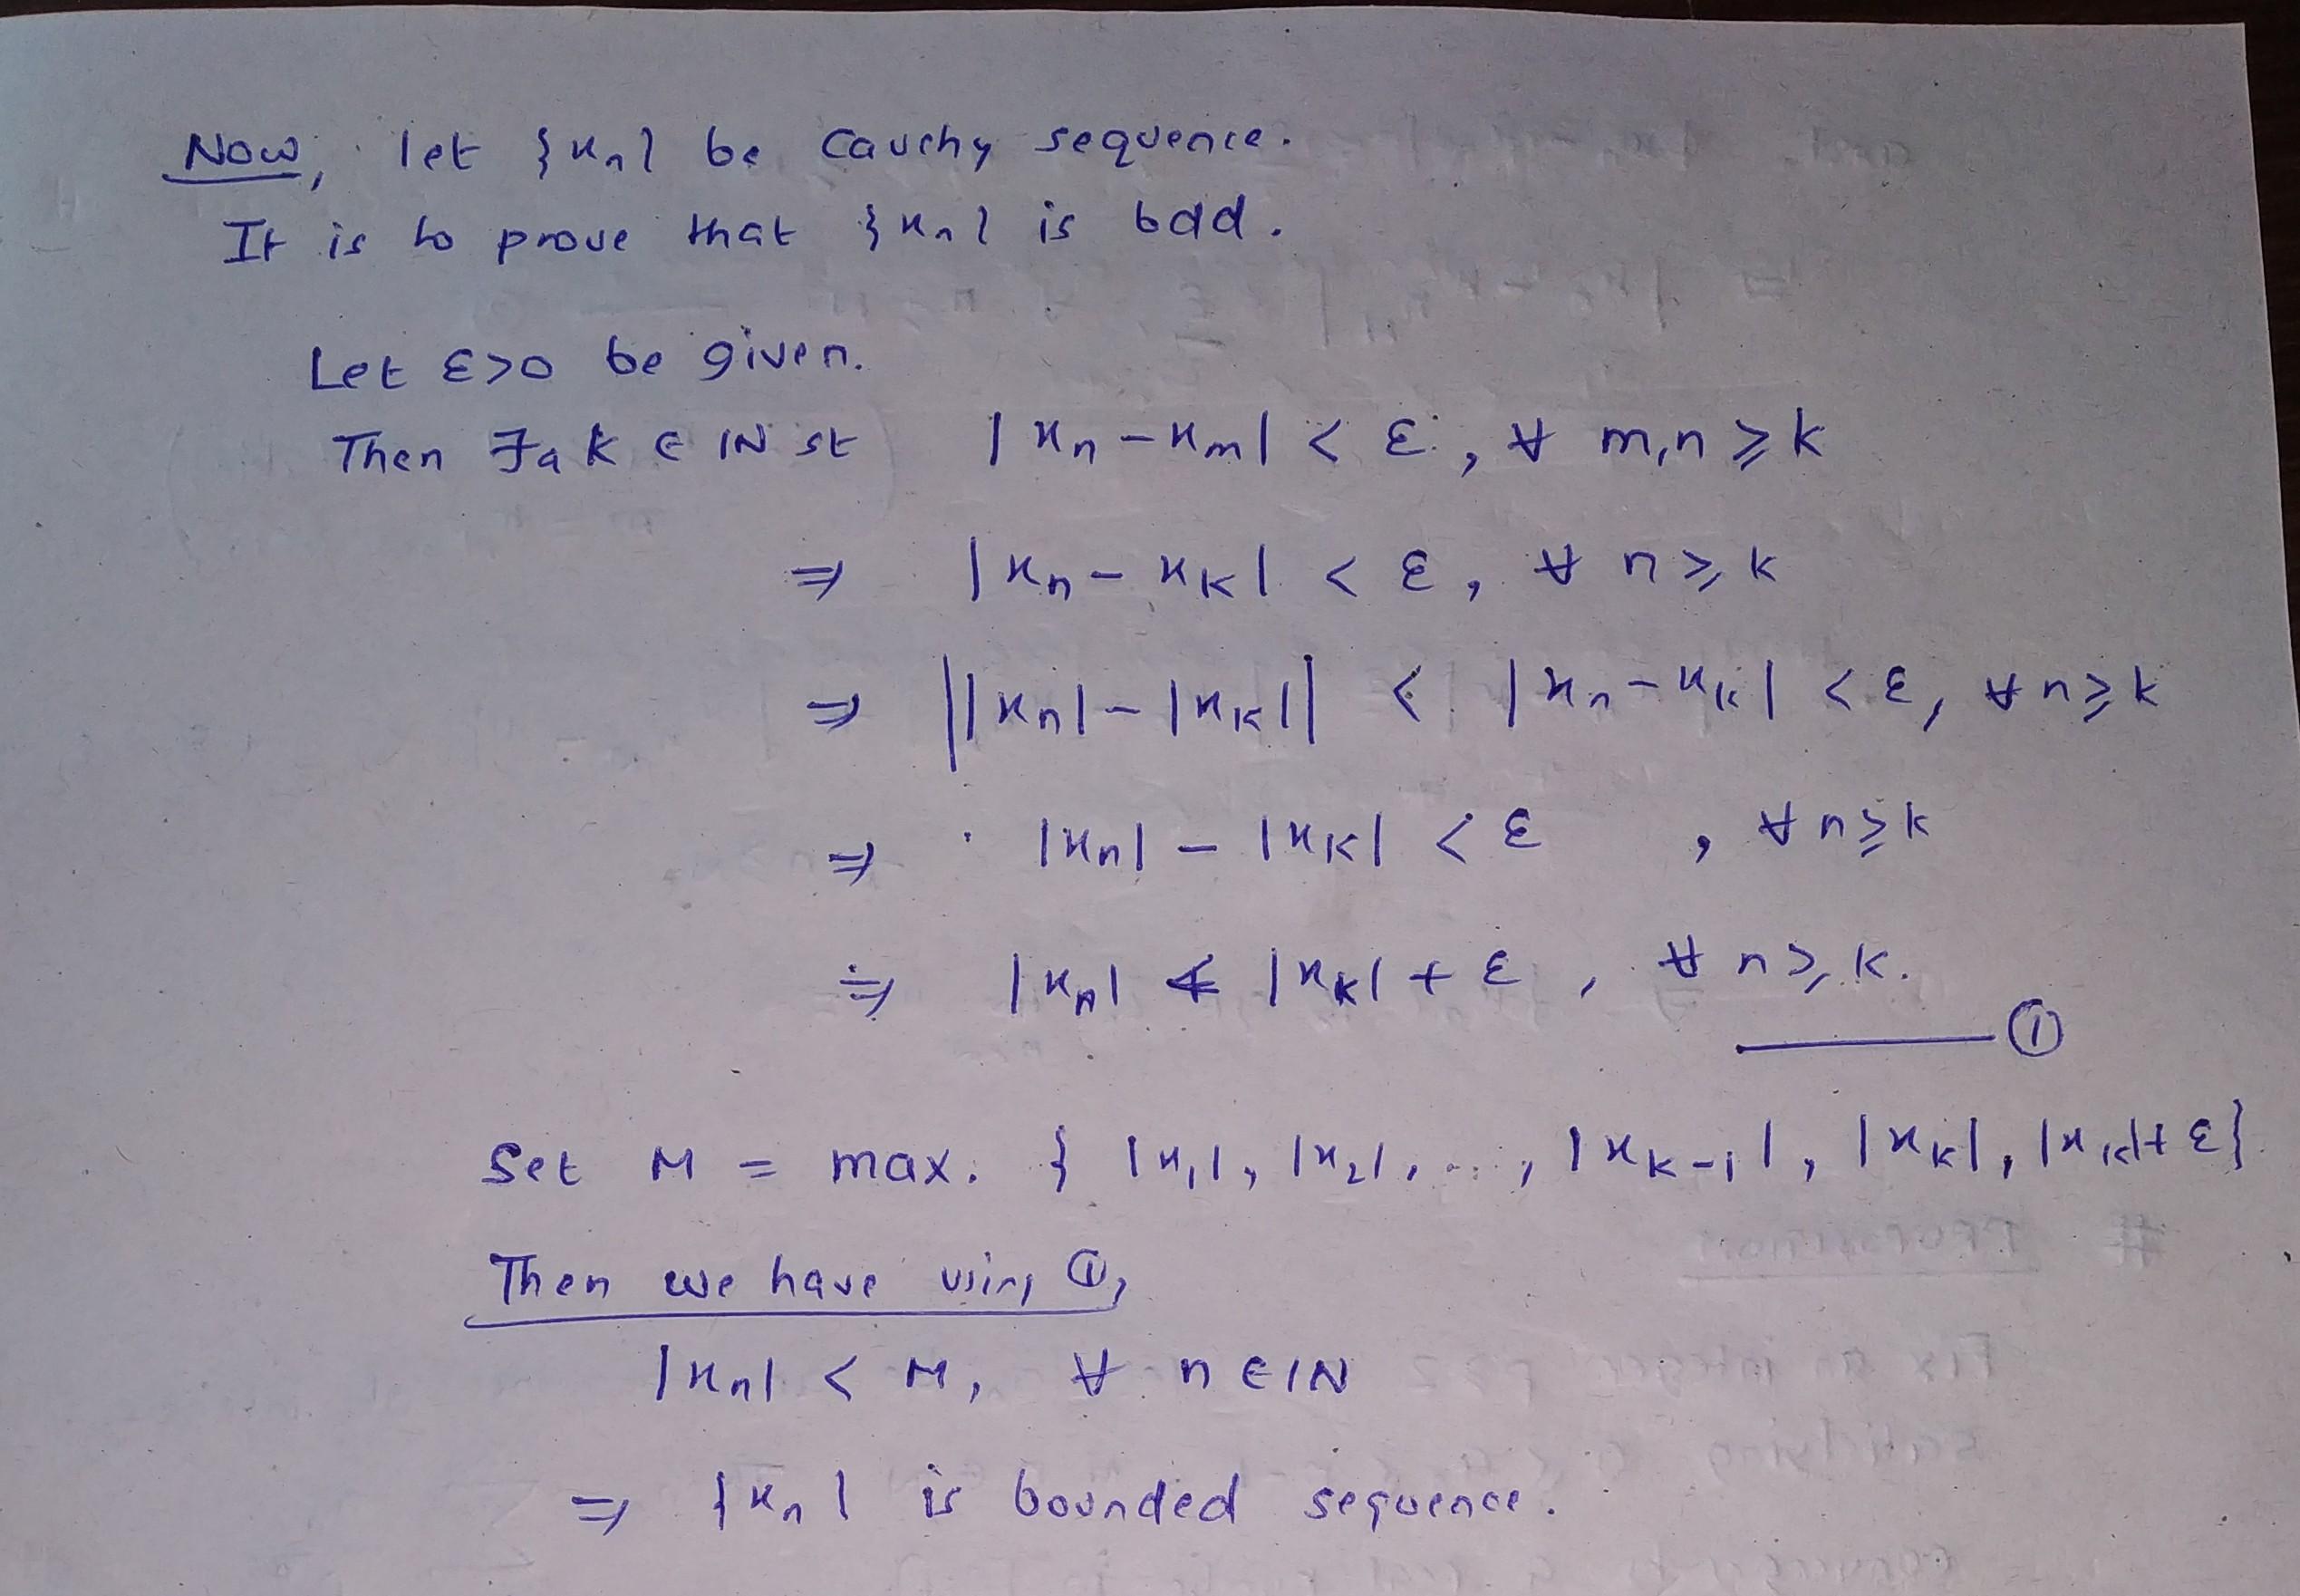 Now, let {xn} be Cauchy sequence.
It is to prove that {xn} is bdd.
Let ε>0 be given.
Then ∃ a k ∈ IN st |xn - xm| < ε, ∀ m,n ≥ k
⇒ |xn - xk| < ε, ∀ n ≥ k
⇒ ||xn| - |xk|| < |xn - xk| < ε, ∀ n ≥ k
⇒ |xn| - |xk| < ε , ∀ n ≥ k
⇒ |xn| < |xk| + ε , ∀ n ≥ k.
① 
Set M = max. {|x1|, |x2|, ..., |xk-1|, |xk|, |xk|+ε}
Then we have using ①,
|xn| < M, ∀ n ∈ IN
⇒ {xn} is bounded sequence.